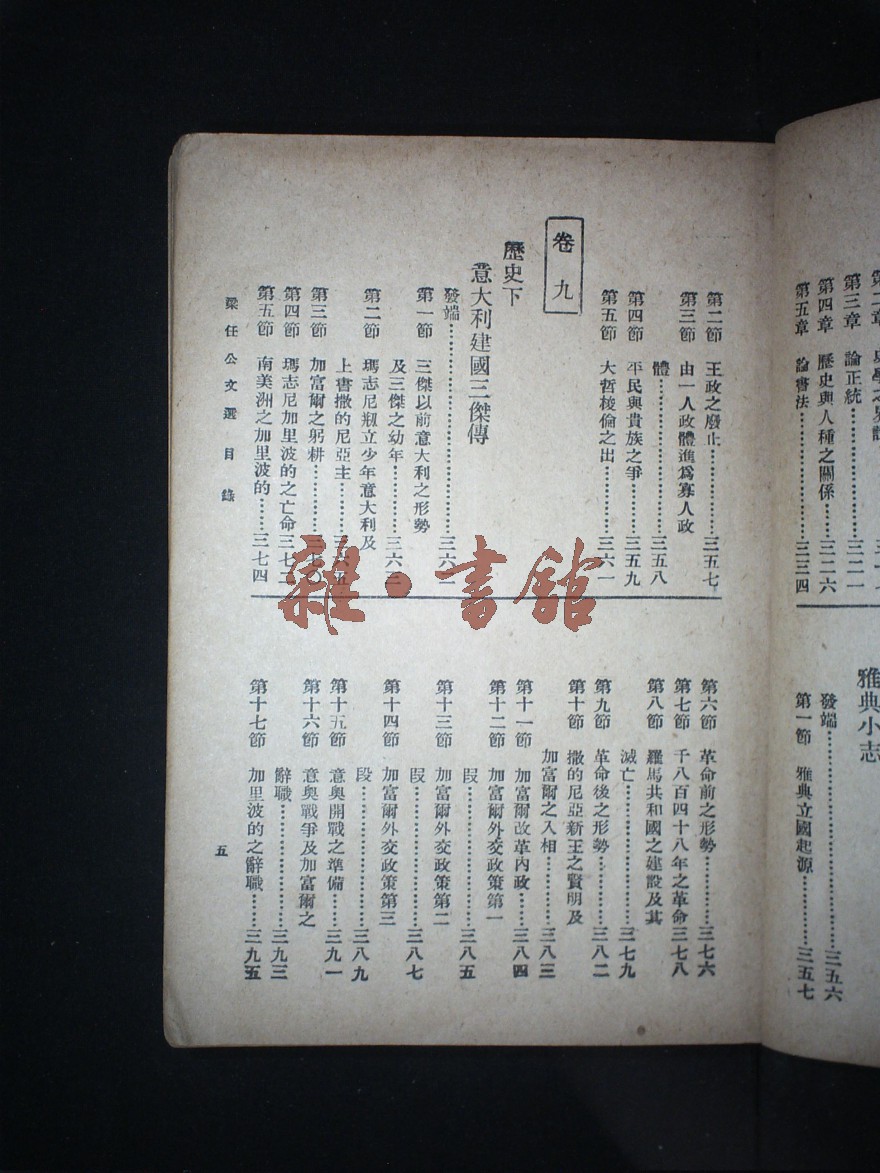 第三章 論正統……三二一
第四章 歷史與人種之關係……三二六
第五章 論書法……三三四
雅典小志
發端……三五六
第一節 雅典立國起源……三五七
第二節 王政之廢止……三五七
第三節 由一人政體進爲寡人政
體……三五八
第四節 平民與貴族之爭……三五九
第五節 大哲梭倫之出……三六一
卷九
歷史下
意大利建國三傑傳
發端……三六二
第一節 三傑以前意大利之形勢
及三傑之幼年……三六三
第二節 瑪志尼剏立少年意大利及
上書撒的尼亞主……三六五
第三節 加富爾之躬耕……三七〇
第四節 瑪志尼加里波的之亡命三七二
第五節 南美洲之加里波的……三七四
第六節 革命前之形勢……三七六
第七節 千八百四十八年之革命三七八
第八節 羅馬共和國之建設及其
滅亡……三七九
第九節 革命後之形勢……三八二
第十節 撒的尼亞新王之賢明及
加富爾之入相……三八三
第十一節 加富爾改革內政……三八四
第十二節 加富爾外交政策第一
段……三八五
第十三節 加富爾外交政策第二
段……三八七
第十四節 加富爾外交政策第三
段……三八九
第十五節 意奧開戰之準備……三九一
第十六節 意奧戰爭及加富爾之
辭職……三九三
第十七節 加里波的之辭職……三九五
梁任公文選目錄
五
雜·書館